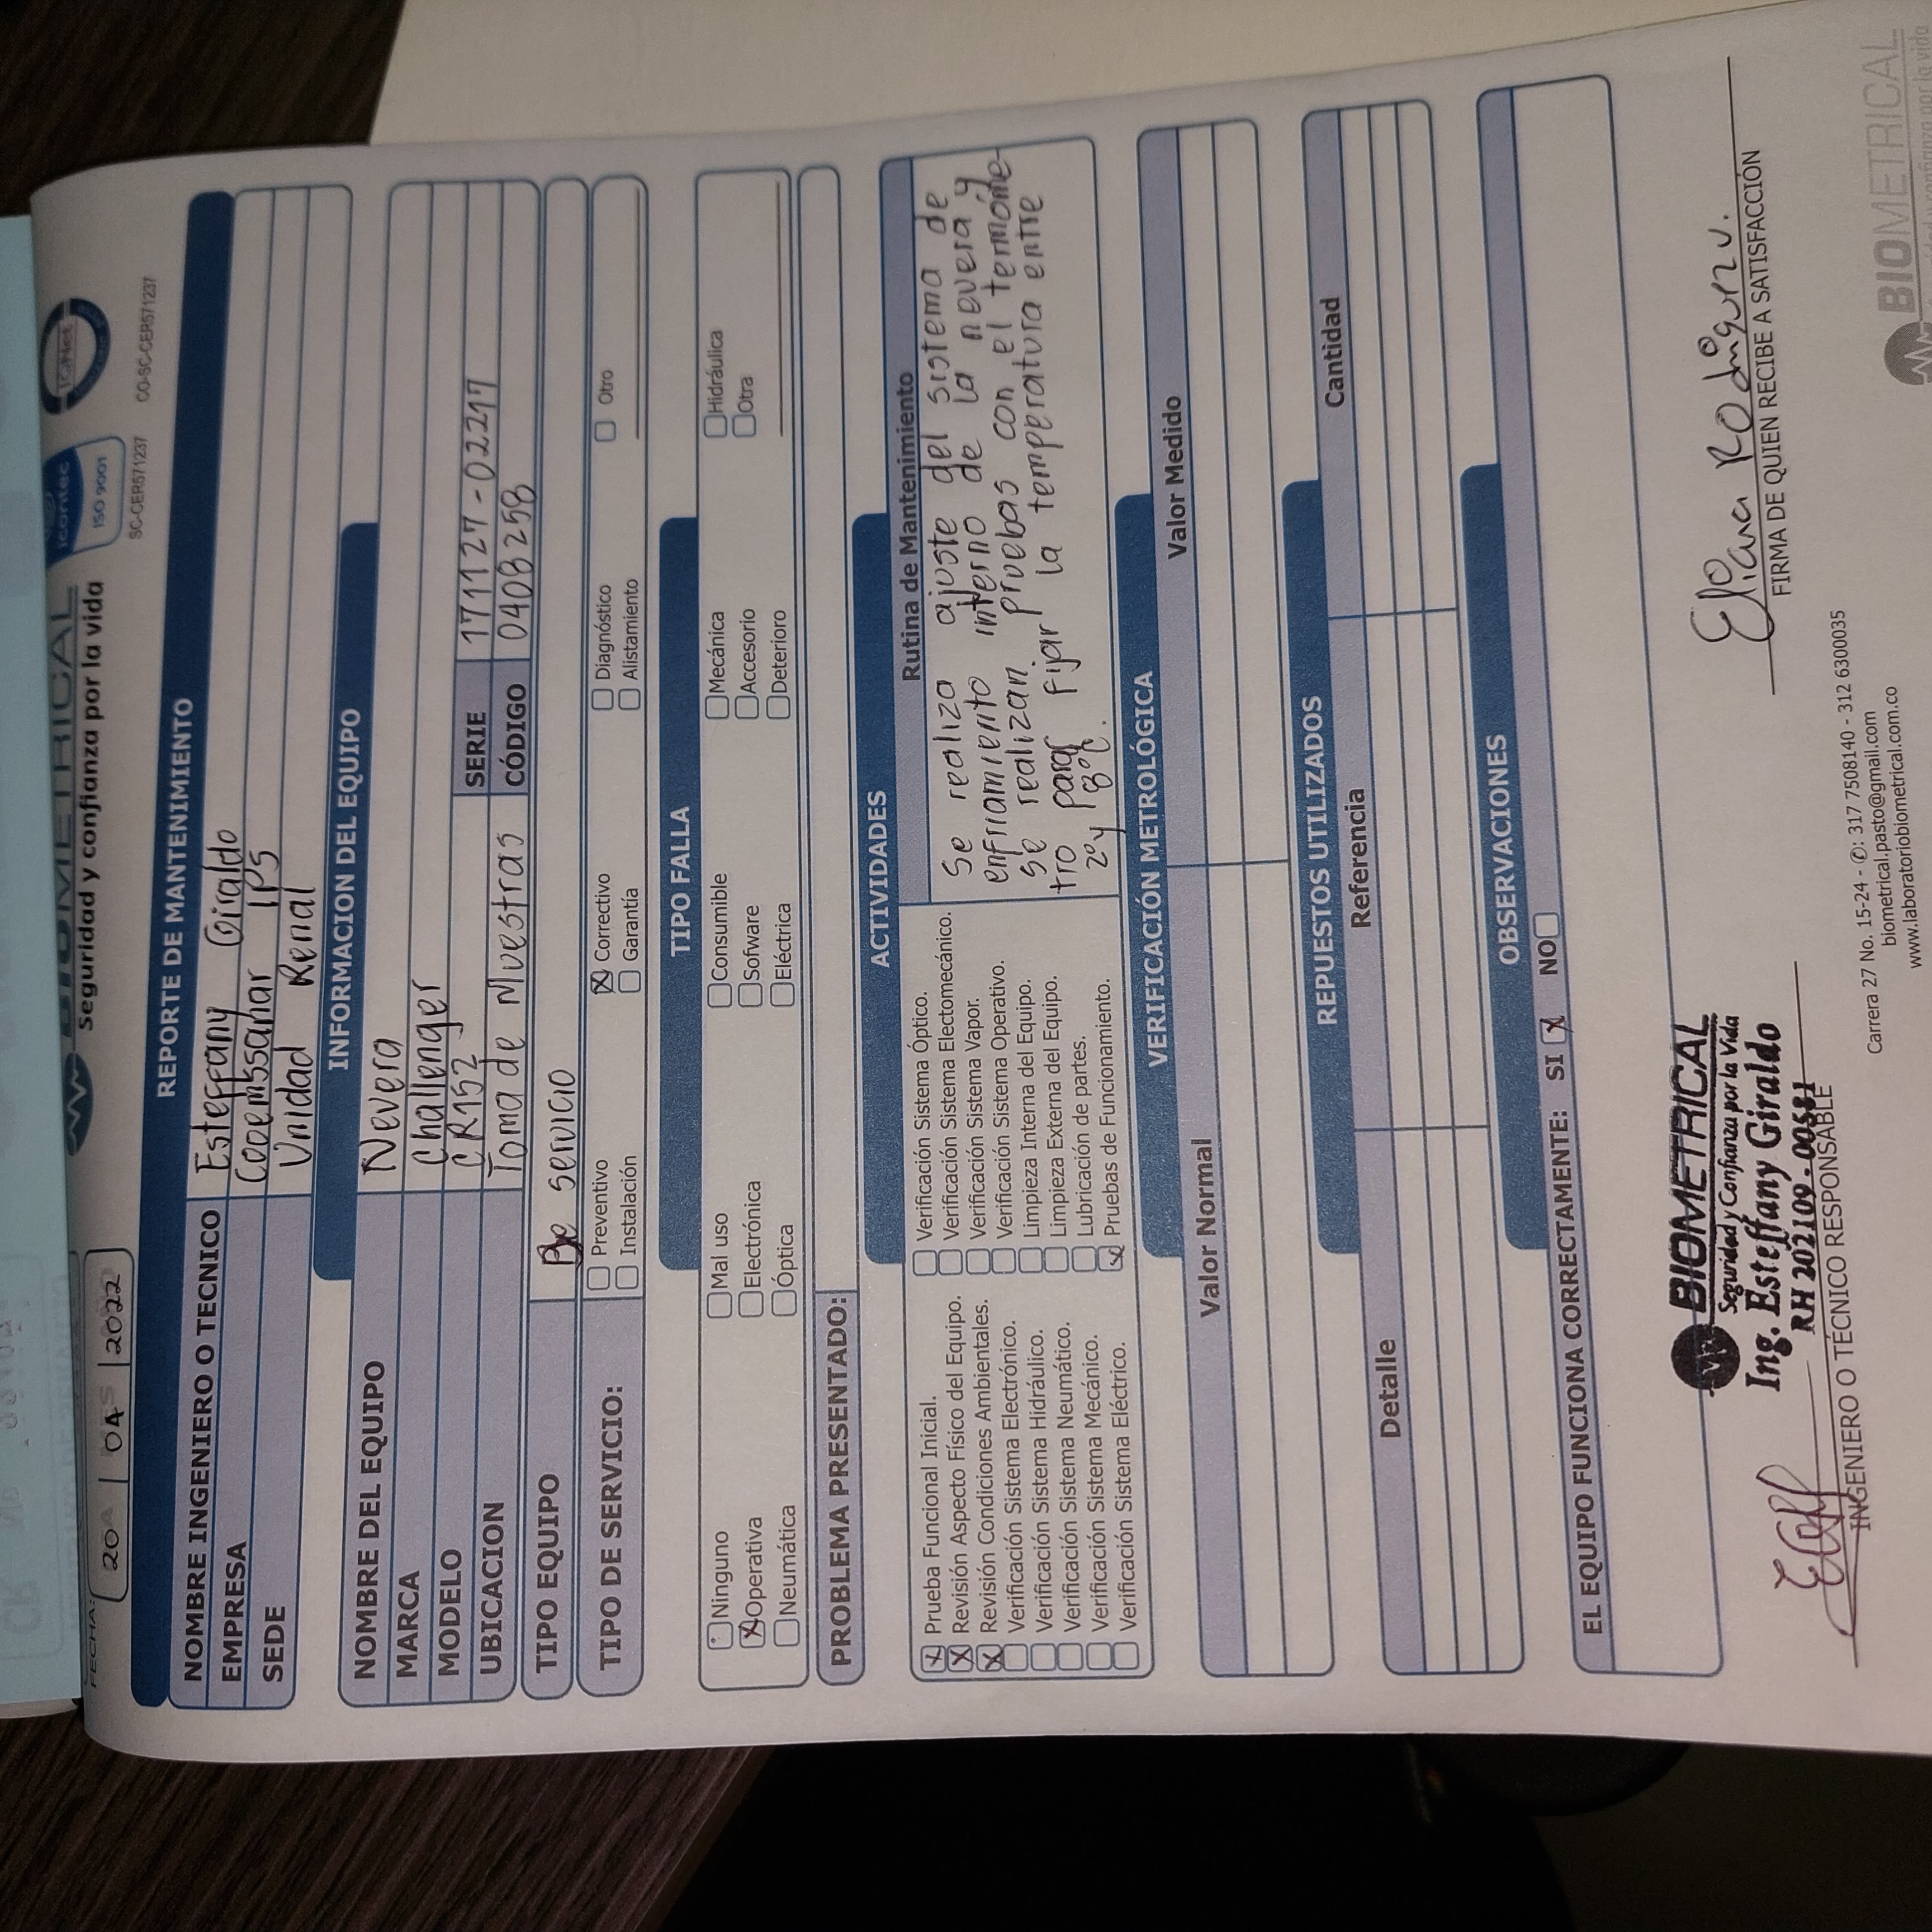 FECHA:
20 04 2022
BIOMETRICAL
Seguridad y confianza por la vida
icontec
ISO 9001
SC-CER571237
IQNet
CO-SC-CER571237
REPORTE DE MANTENIMIENTO
NOMBRE INGENIERO O TECNICO Esteffany Giraldo
EMPRESA Cooemssanar IPS
SEDE Unidad Renal
INFORMACION DEL EQUIPO
NOMBRE DEL EQUIPO Nevera
MARCA Challenger
MODELO CR152 SERIE 171127-02217
UBICACION Toma de Muestras CÓDIGO 0408258
TIPO EQUIPO De servicio
TIPO DE SERVICIO:
Preventivo X Correctivo Diagnóstico Otro
Instalación Garantía Alistamiento
TIPO FALLA
Ninguno Mal uso Consumible Mecánica Hidráulica
X Operativa Electrónica Sofware Accesorio Otra
Neumática Óptica Eléctrica Deterioro
PROBLEMA PRESENTADO:
ACTIVIDADES
X Prueba Funcional Inicial.
X Revisión Aspecto Físico del Equipo.
X Revisión Condiciones Ambientales.
Verificación Sistema Electrónico.
Verificación Sistema Hidráulico.
Verificación Sistema Neumático.
Verificación Sistema Mecánico.
Verificación Sistema Eléctrico.
Verificación Sistema Óptico.
Verificación Sistema Electomecánico.
Verificación Sistema Vapor.
Verificación Sistema Operativo.
Limpieza Interna del Equipo.
Limpieza Externa del Equipo.
Lubricación de partes.
X Pruebas de Funcionamiento.
Rutina de Mantenimiento
Se realiza ajuste del sistema de
enfriamiento interno de la nevera y
se realizan pruebas con el termóme-
tro para fijar la temperatura entre
2° y 8°C.
VERIFICACIÓN METROLÓGICA
Valor Normal Valor Medido
REPUESTOS UTILIZADOS
Detalle Referencia Cantidad
OBSERVACIONES
EL EQUIPO FUNCIONA CORRECTAMENTE: SI X NO
BIOMETRICAL
Seguridad y Confianza por la Vida
Ing. Esteffany Giraldo
RH 202109 - 00581
INGENIERO O TÉCNICO RESPONSABLE
Eliana Rodriguez v.
FIRMA DE QUIEN RECIBE A SATISFACCIÓN
Carrera 27 No. 15-24 - ✆: 317 7508140 - 312 6300035
biometrical.pasto@gmail.com
www.laboratoriobiometrical.com.co
BIOMETRICAL
Seguridad y confianza por la vida